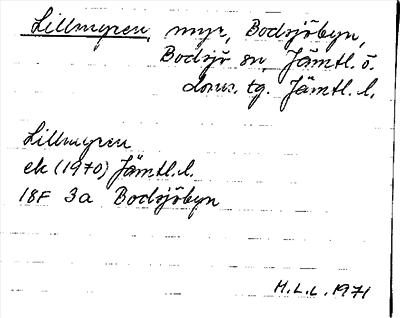 Lillmyren, myr, Bodsjöbyn,
Bodsjö sn, Jämtl. ö.
doms. tg. Jämtl. l.
Lillmyren
ek (1970) Jämtl. l.
18F 3a Bodsjöbyn
H.L.L. 1971